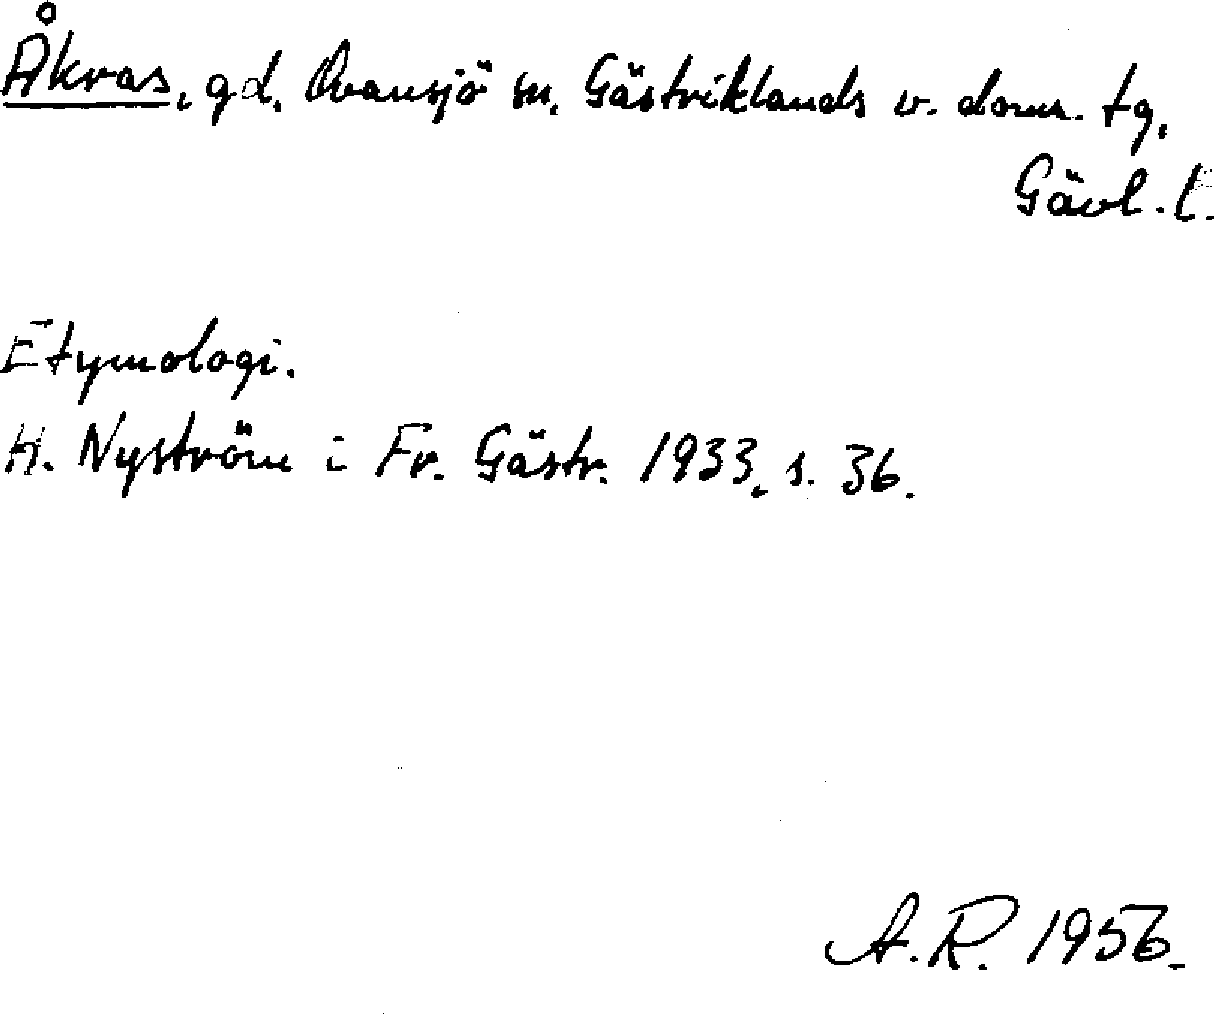 Åkras, gd. Ovansjö sn. Gästriklands v. doms. tg,
Gävl. l.
Etymologi.
H. Nyström i Fr. Gästr. 1933, s. 36.
A.R. 1956.